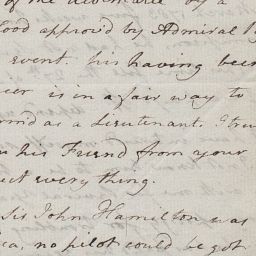 of the
ood approv'd by Admiral
event. his having been
cer is in a fair way to
rm'd as a Lieutenant. I tru
his Friend from your
ect every thing.
Sir John Hamilton was
ca, no pilot could be got